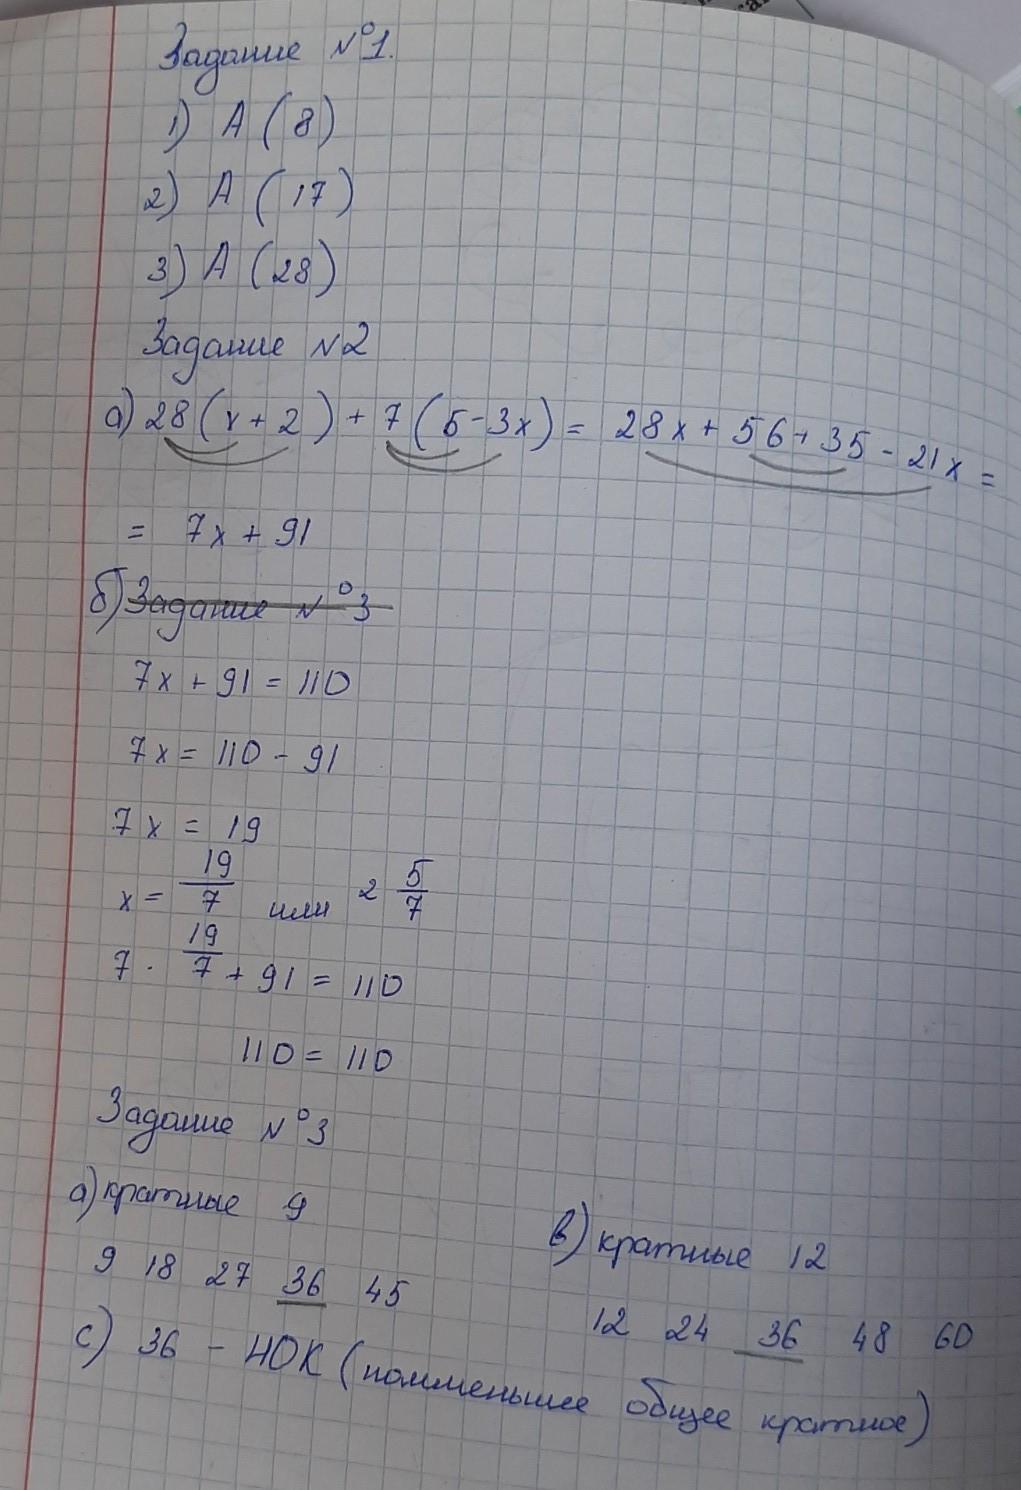 Задание №1.
1) А (8)
2) А (17)
3) А (28)
Задание №2
а) 28(x+2)+7(5-3x)= 28x+56+35-21x=
= 7x+91
б) Задание №3
7x+91=110
7x=110-91
7x=19
x= 19/7 или 2 5/7
7 · 19/7 + 91 = 110
110=110
Задание №3
а) кратные 9
9 18 27 36 45
в) кратные 12
12 24 36 48 60
с) 36 - НОК (наименьшее общее кратное)